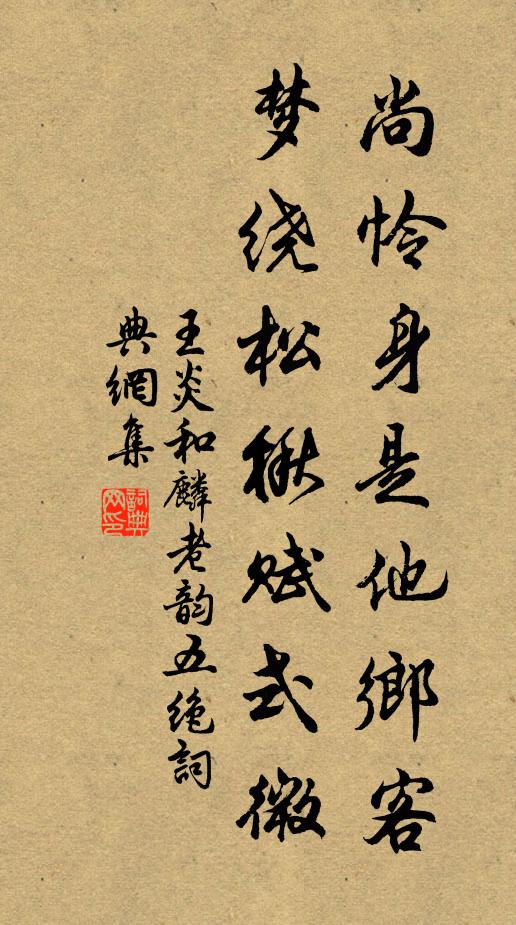 尚怜身是他鄉客
梦绕松楸赋式微
王炎和麟老韵五绝詞
典網集
詞典
网印